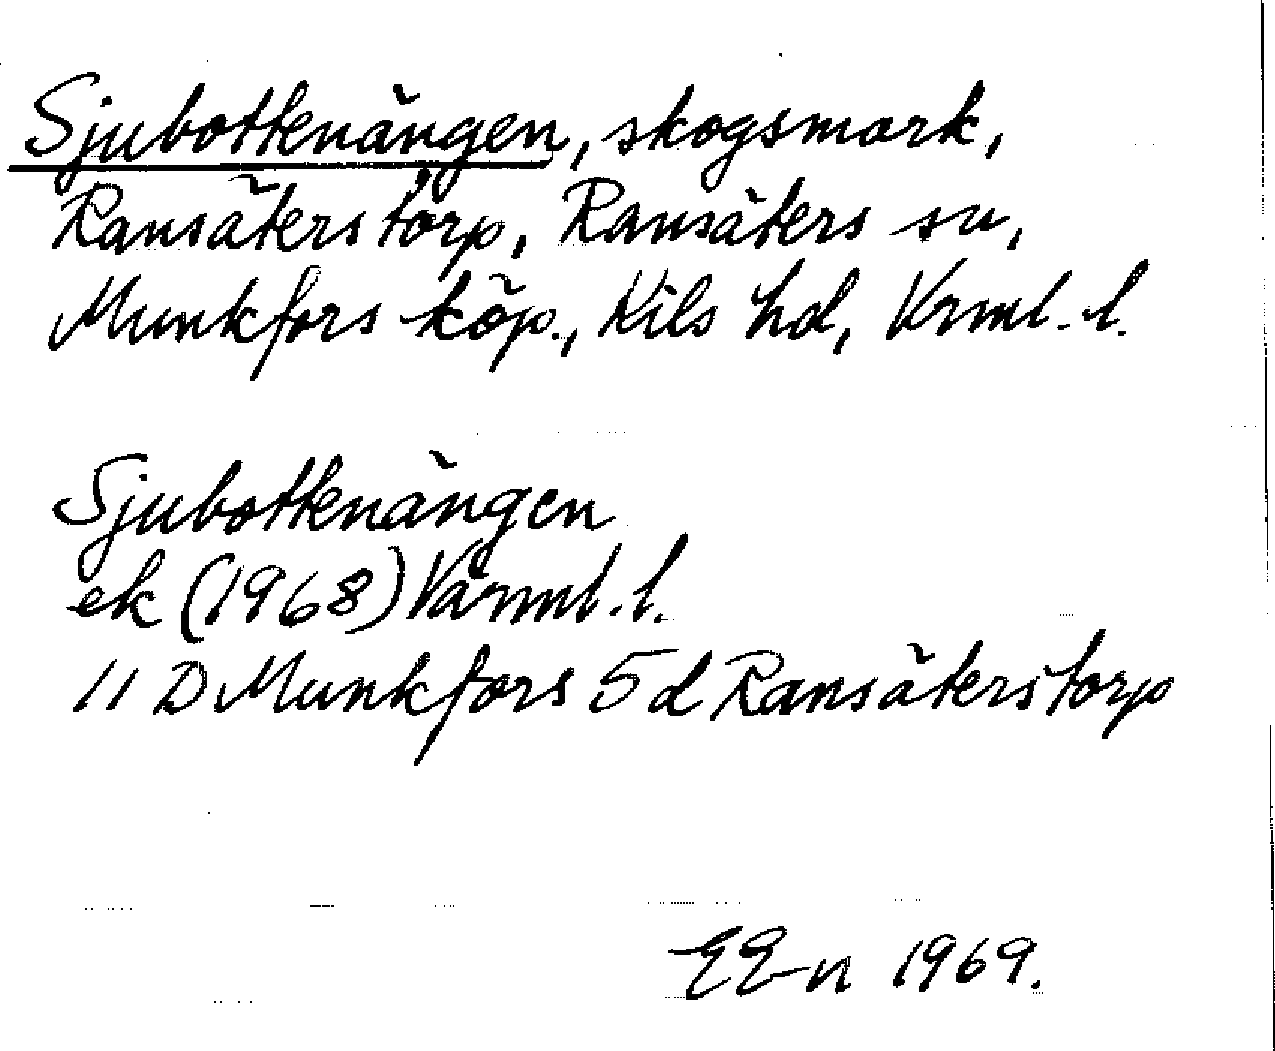 Sjubottenängen, skogsmark,
Ransäterstorp, Ransäters sn,
Munkfors köp., Kils hd, Vrml. l.
Sjubottenängen
ek (1968) Värml. l.
11 D Munkfors 5 d Ransäterstorp
EE-n 1969.